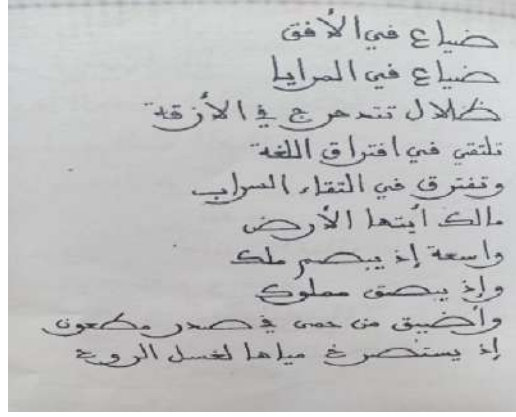 ضياع في الأفق
ضياع في المرايا
ظلال تتدحرج في الأزقة
تلتقي في افتراق اللغة
وتفترق في التقاء السراب
مالك أيتها الأرض
واسعة إذ يبصم ملك
وإذ يبصق مملوك
وأضيق من حمى في صدر مطعون
إذ يستصرخ مياها لغسل الروح